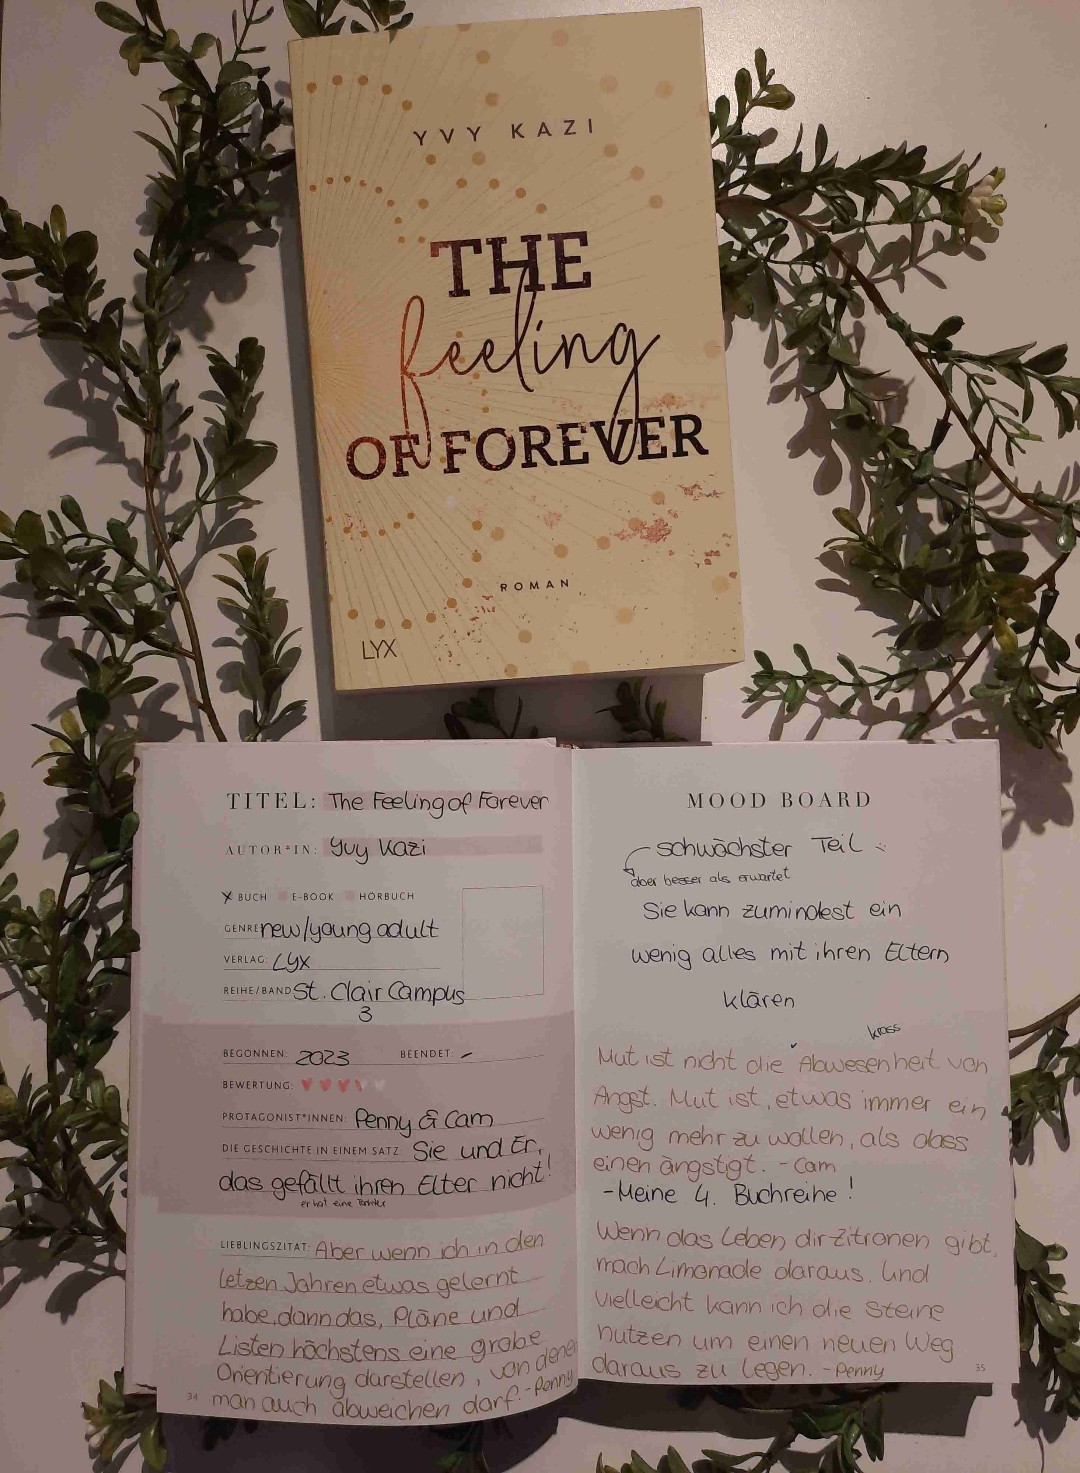 YVY KAZI
THE
feeling
OF FOREVER
ROMAN
LYX
TITEL: The Feeling of Forever
AUTOR*IN: Yvy Kazi
X BUCH E-BOOK HÖRBUCH
GENRE new/young adult
VERLAG: Lyx
REIHE/BAND St. Clair Campus
3
BEGONNEN: 2023 BEENDET: –
BEWERTUNG:
PROTAGONIST*INNEN: Penny & Cam
DIE GESCHICHTE IN EINEM SATZ: Sie und Er,
das gefällt ihren Elter nicht!
er hat eine Tochter
LIEBLINGSZITAT: Aber wenn ich in den
letzen Jahren etwas gelernt
habe, dann das, Pläne und
Listen höchstens eine grobe
Orientierung darstellen, von denen
man auch abweichen darf. - Penny
34
MOOD BOARD
schwächster Teil :
aber besser als erwartet
Sie kann zumindest ein
wenig alles mit ihren Eltern
klären
krass
Mut ist nicht die Abwesenheit von
Angst. Mut ist, etwas immer ein
wenig mehr zu wollen, als dass
einen ängstigt. - Cam
- Meine 4. Buchreihe!
Wenn das Leben dir Zitronen gibt,
mach Limonade daraus. Und
vielleicht kann ich die Steine
nutzen um einen neuen Weg
daraus zu legen. - Penny
35